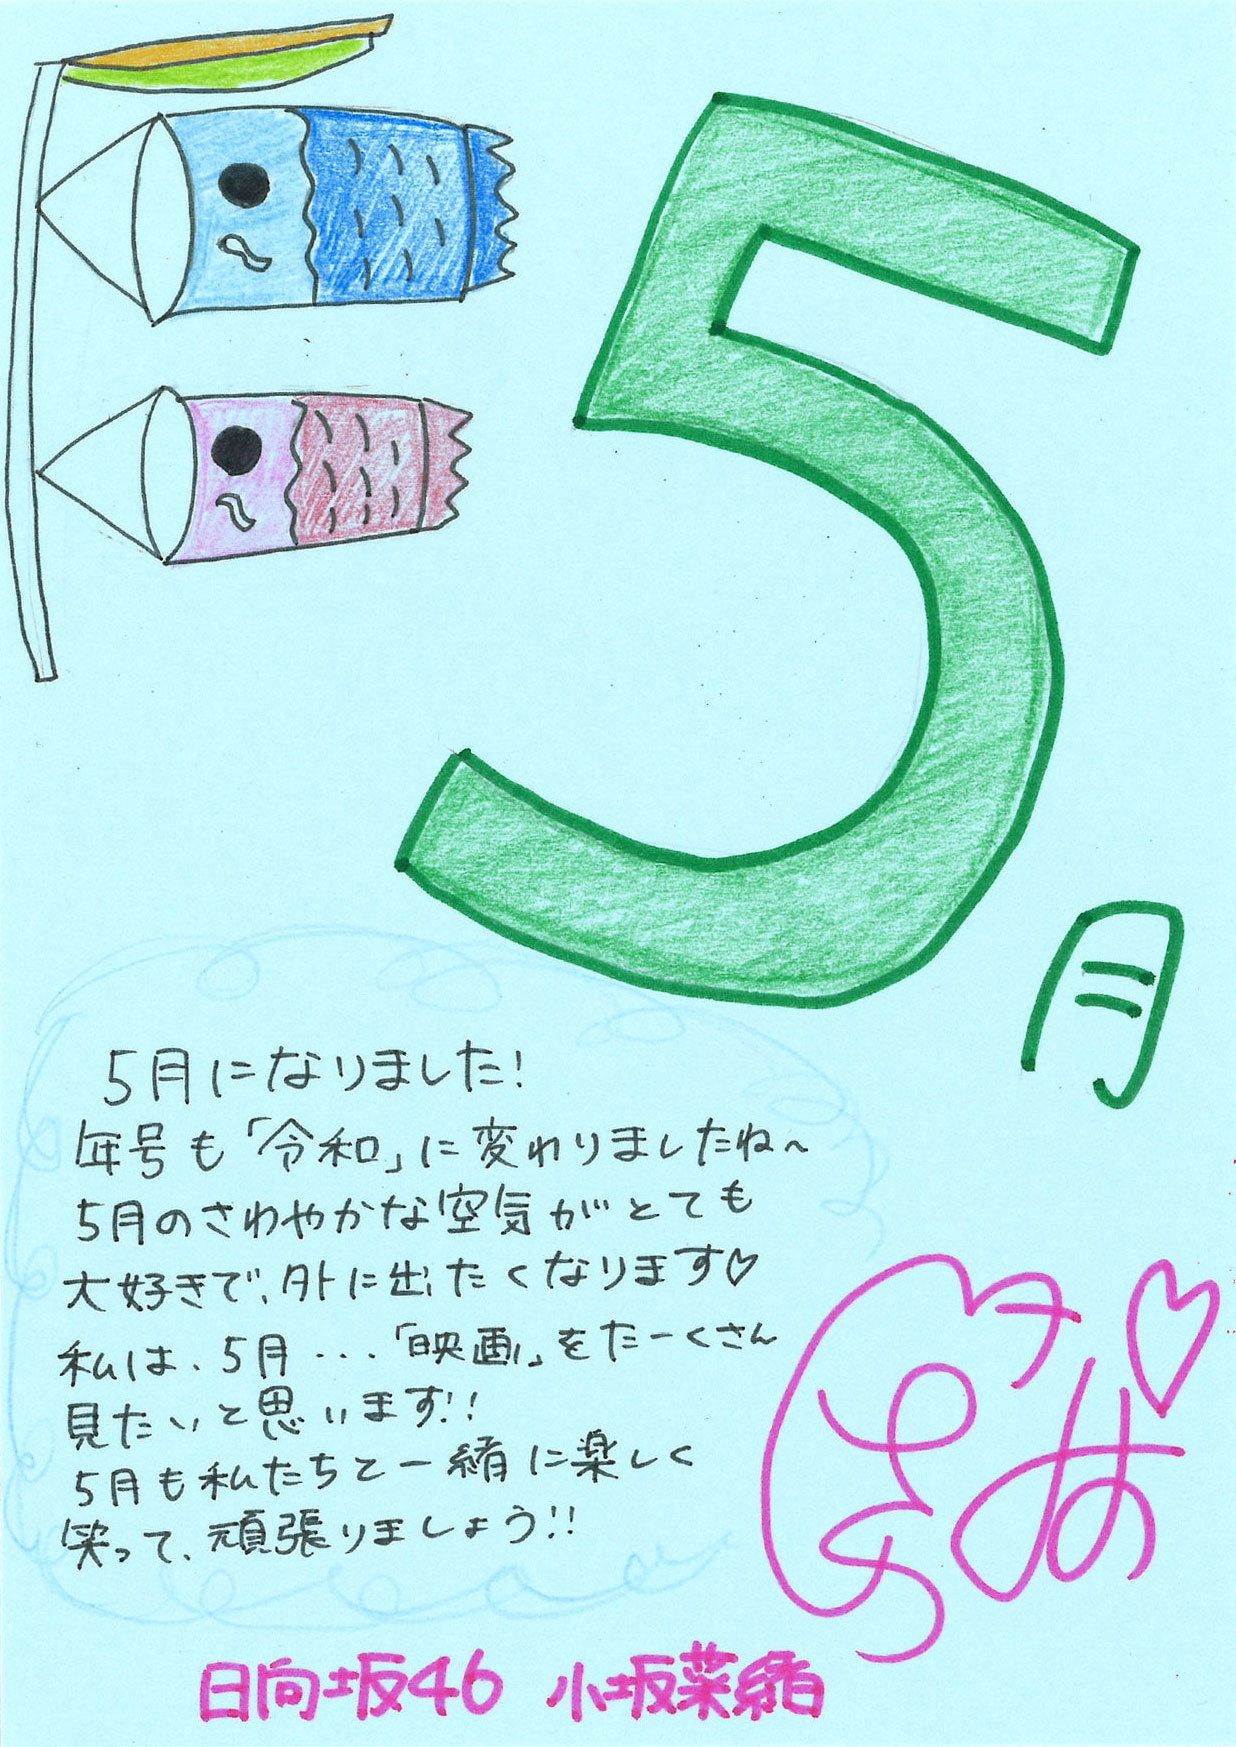 5月
5月になりました!
年号も「令和」に変わりましたね〜
5月のさわやかな空気がとても
大好きで、外に出たくなります♡
私は、5月...「映画」をたーくさん
見たいと思います!!
5月も私たちと一緒に楽しく
笑って、頑張りましょう!!
日向坂46 小坂菜緒